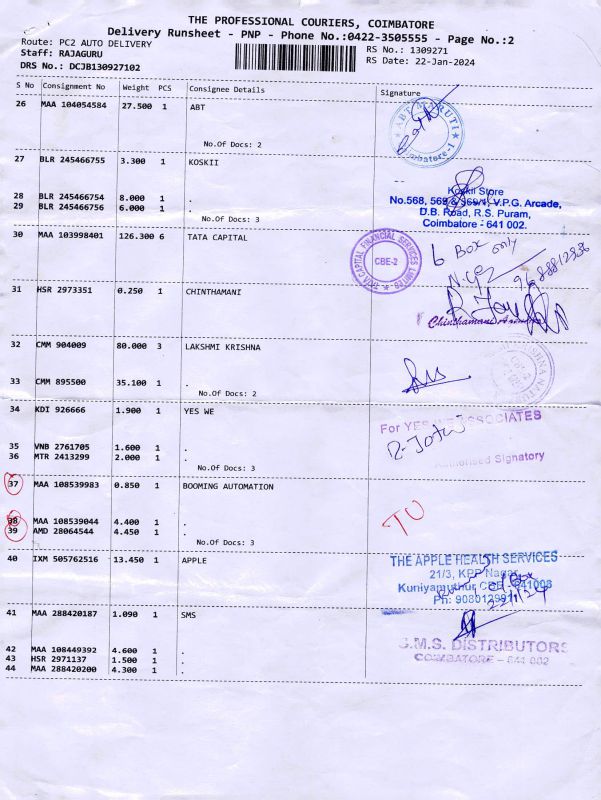 THE PROFESSIONAL COURIERS, COIMBATORE
Delivery Runsheet - PNP - Phone No.:0422-3505555 - Page No.:2
Route: PC2 AUTO DELIVERY
Staff: RAJAGURU
RS No.: 1309271
DRS No.: DCJB130927102
RS Date: 22-Jan-2024
S No Consignment No Weight PCS Consignee Details Signature
26 MAA 104054584 27.500 1 ABT
ABT MARUTI
Coimbatore-1
No.Of Docs: 2
27 BLR 245466755 3.300 1 KOSKII
28 BLR 245466754 8.000 1 .
29 BLR 245466756 6.000 1 .
No.Of Docs: 3
Koskii Store
No.568, 569 & 569/1, V.P.G. Arcade,
D.B. Road, R.S. Puram,
Coimbatore - 641 002.
30 MAA 103998401 126.300 6 TATA CAPITAL
TATA CAPITAL FINANCIAL SERVICES LIMITED
CBE-2
6 Box only
31 HSR 2973351 0.250 1 CHINTHAMANI
Chinthamani
32 CMM 904009 80.000 3 LAKSHMI KRISHNA
33 CMM 895500 35.100 1 .
No.Of Docs: 2
34 KDI 926666 1.900 1 YES WE
For YES WE ASSOCIATES
35 VNB 2761705 1.600 1 .
36 MTR 2413299 2.000 1 .
Authorised Signatory
No.Of Docs: 3
37 MAA 108539983 0.850 1 BOOMING AUTOMATION
38 MAA 108539044 4.400 1 .
39 AMD 28064544 4.450 1 .
No.Of Docs: 3
40 IXM 505762516 13.450 1 APPLE
THE APPLE HEALTH SERVICES
21/3, KPP Nagar,
Kuniyamuthur, CBE - 641008
22/1/24
41 MAA 288420187 1.090 1 SMS
42 MAA 108449392 4.600 1 .
43 HSR 2971137 1.500 1 .
44 MAA 288420200 4.300 1 .
S.M.S. DISTRIBUTORS
COIMBATORE - 641 002